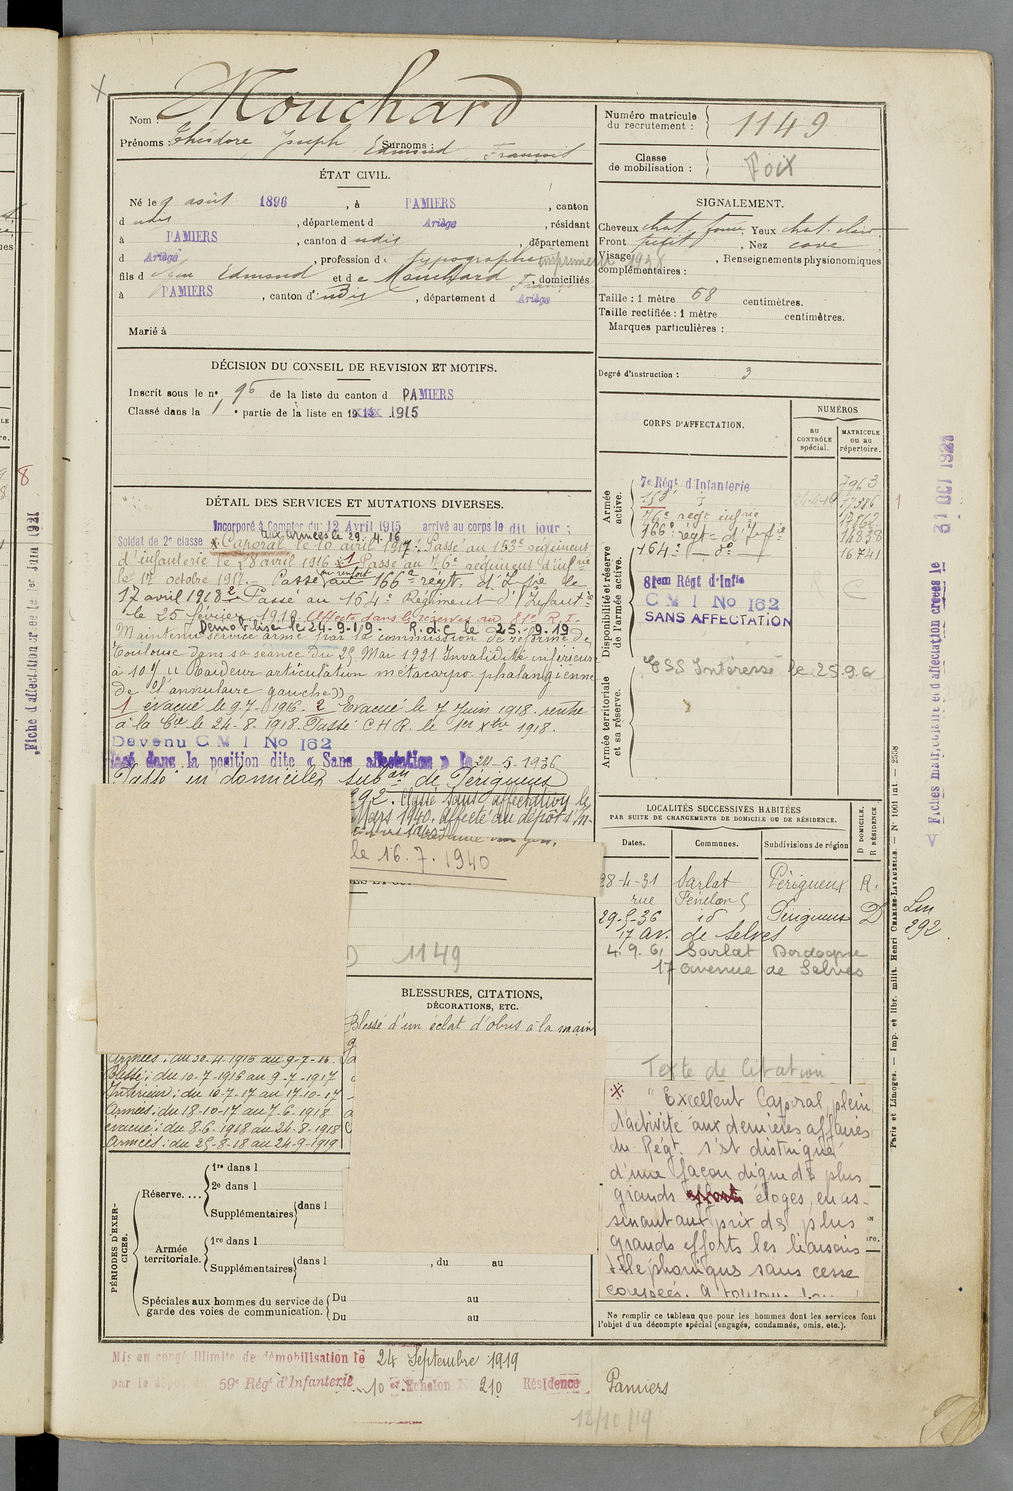 Mouchard
Nom :
Prénoms : Théodore Joseph Surnoms : Edmond François
ÉTAT CIVIL.
Né le 9 août 1896, à PAMIERS, canton
d udit, département d Ariège, résidant
à PAMIERS, canton d udit, département
d Ariège, profession de typographe imprimeur 1928
fils d Jean Edmond et de Mouchard Françoise, domiciliés
à PAMIERS, canton d'udit, département d Ariège
Marié à
DÉCISION DU CONSEIL DE REVISION ET MOTIFS.
Inscrit sous le n° 95 de la liste du canton d PAMIERS
Classé dans la 1e partie de la liste en 1915
DÉTAIL DES SERVICES ET MUTATIONS DIVERSES.
Incorporé à Compter du 12 Avril 1915 arrivé au corps le dit jour ;
aux armées le 29.4.16
Soldat de 2e classe Caporal le 10 avril 1917. Passé au 153e régiment
d'infanterie le 28 avril 1916 Passé au 76e régiment d'infrie
le 17 octobre 1917. Passé en renfort au 166e régt. d'Infie le
17 avril 1918 Passé au 164e Régiment d'Infantie
le 25 février 1919. Affecté dans les réserves au 81e R.I.
Démobilisé le 24-9-19. R.d.C. le 25.9.19
Maintenu service armé par la commission de réforme de
Toulouse dans sa séance du 25 Mai 1921 Invalidité inférieure
à 10% (( Raideur articulation métacarpo phalangienne
de l'annulaire gauche))
1 évacué le 9.7.1916. 2 Evacué le 7 Juin 1918. rentré
à la Cie le 24-8-1918 Passé C.H.R. le 1er Xbre 1918.
Devenu C M I No 162
dans la position dite « Sans affectation » le 20-5-1936
Passé en domicile subon de Périgueux
292. Classé sans affectation le
Mars 1940. affecté au dépôt d'In-
le 16.7.1940
1149
BLESSURES, CITATIONS,
DÉCORATIONS, ETC.
Blessé d'un éclat d'obus à la main
Armées : du 30-4-1916 au 9-7-16.
Blessé : du 10-7-1916 au 9-7-1917
Intérieur : du 10-7-17 au 17-10-17
Armées : du 18-10-17 au 7-6-1918
évacué : du 8-6-1918 au 24-8-1918
Armées : du 25-8-18 au 24-9-1919
PÉRIODES D'EXERCICES.
Réserve....
1re dans l
2e dans l
Supplémentaires dans l
Armée territoriale.
1re dans l
Supplémentaires dans l , du au
Spéciales aux hommes du service de garde des voies de communication.
Du au
Du au
Mis en congé illimité de démobilisation le 24 Septembre 1919
par le dépôt du 59e Régt d'Infanterie 10e Echelon N° 210 Résidence Pamiers
12/10/19
Numéro matricule du recrutement : 1149
Classe de mobilisation : Foix
SIGNALEMENT.
Cheveux chat. foncé, Yeux chat. clair
Front petit, Nez cave
Visage , Renseignements physionomiques
complémentaires :
Taille : 1 mètre 68 centimètres.
Taille rectifiée : 1 mètre centimètres.
Marques particulières :
Degré d'instruction : 3
CORPS D'AFFECTATION.
NUMÉROS
au CONTRÔLE spécial.
MATRICULE ou au répertoire.
Armée active.
7e Régt d'Infanterie 7963
153e
76e régt infrie
166e régt d'Infie 14838
164e do 16741
Disponibilité et réserve de l'armée active.
81em Régt d'Infie
C M I No 162
SANS AFFECTATION
Armée territoriale et sa réserve.
ESS Intéressé le 25.9.61
LOCALITÉS SUCCESSIVES HABITÉES
PAR SUITE DE CHANGEMENTS DE DOMICILE OU DE RÉSIDENCE.
Dates. Communes. Subdivisions de région D DOMICILE. R RÉSIDENCE
28-4-31 Sarlat Périgueux R.
rue Fénelon 5
29-5-36 id Périgueux D
17 av. de Selves
4.9.61 Sarlat Dordogne
17 avenue de Selves
Texte de Citation
"Excellent Caporal, plein
d'activité aux dernières affaires
du Régt. s'est distingué
d'une façon digne des plus
grands éloges, en as-
surant aux prix des plus
grands efforts les liaisons
téléphoniques sans cesse
coupées. A toujours
Ne remplir ce tableau que pour les hommes dont les services font
l'objet d'un décompte spécial (engagés, condamnés, omis, etc.).
Fiche d'affectation créée le 1er Juin 1921
Fiches matriculaire et d'affectation créées le 31 OCT 1928
Lm
292
Paris et Limoges. — Imp. et libr. milit. Henri CHARLES-LAVAUZELLE. — N° 1001 int — 2508